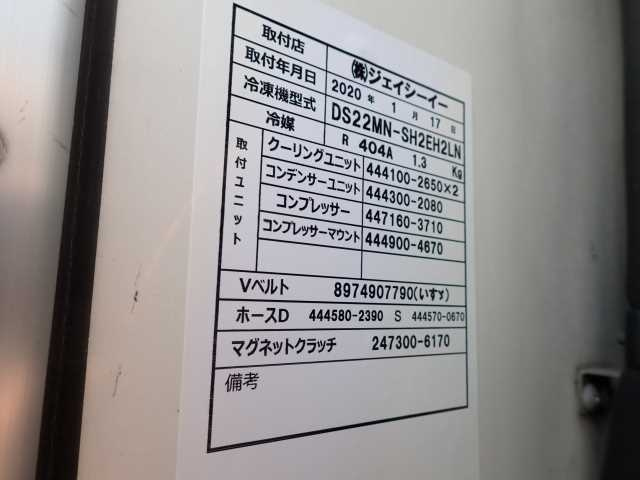 取付店 ㈱ジェイシーイー
取付年月日 2020 年 1 月 17 日
冷凍機型式 DS22MN-SH2EH2LN
冷媒 R 404A 1.3 Kg
取付ユニット
クーリングユニット 444100-2650×2
コンデンサーユニット 444300-2080
コンプレッサー 447160-3710
コンプレッサーマウント 444900-4670
Vベルト 8974907790(いすゞ)
ホースD 444580-2390 S 444570-0670
マグネットクラッチ 247300-6170
備考